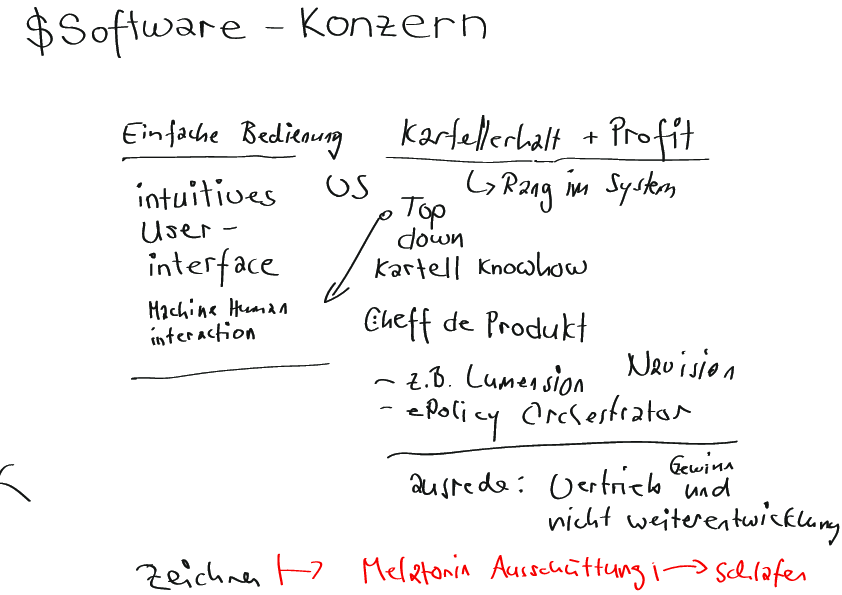 $Software - Konzern
Einfache Bedienung
intuitives
User-
interface
Machine Human
interaction
VS
Kartellerhalt + Profit
↳ Rang im System
Top
down
Kartell Knowhow
Cheff de Produkt
- z.B. Lumension Nevision
- ePolicy Orchestrator
ausrede: Vertrieb Gewinn und
nicht weiterentwicklung
Zeichnen ↦ Melatonin Ausschüttung → schlafen